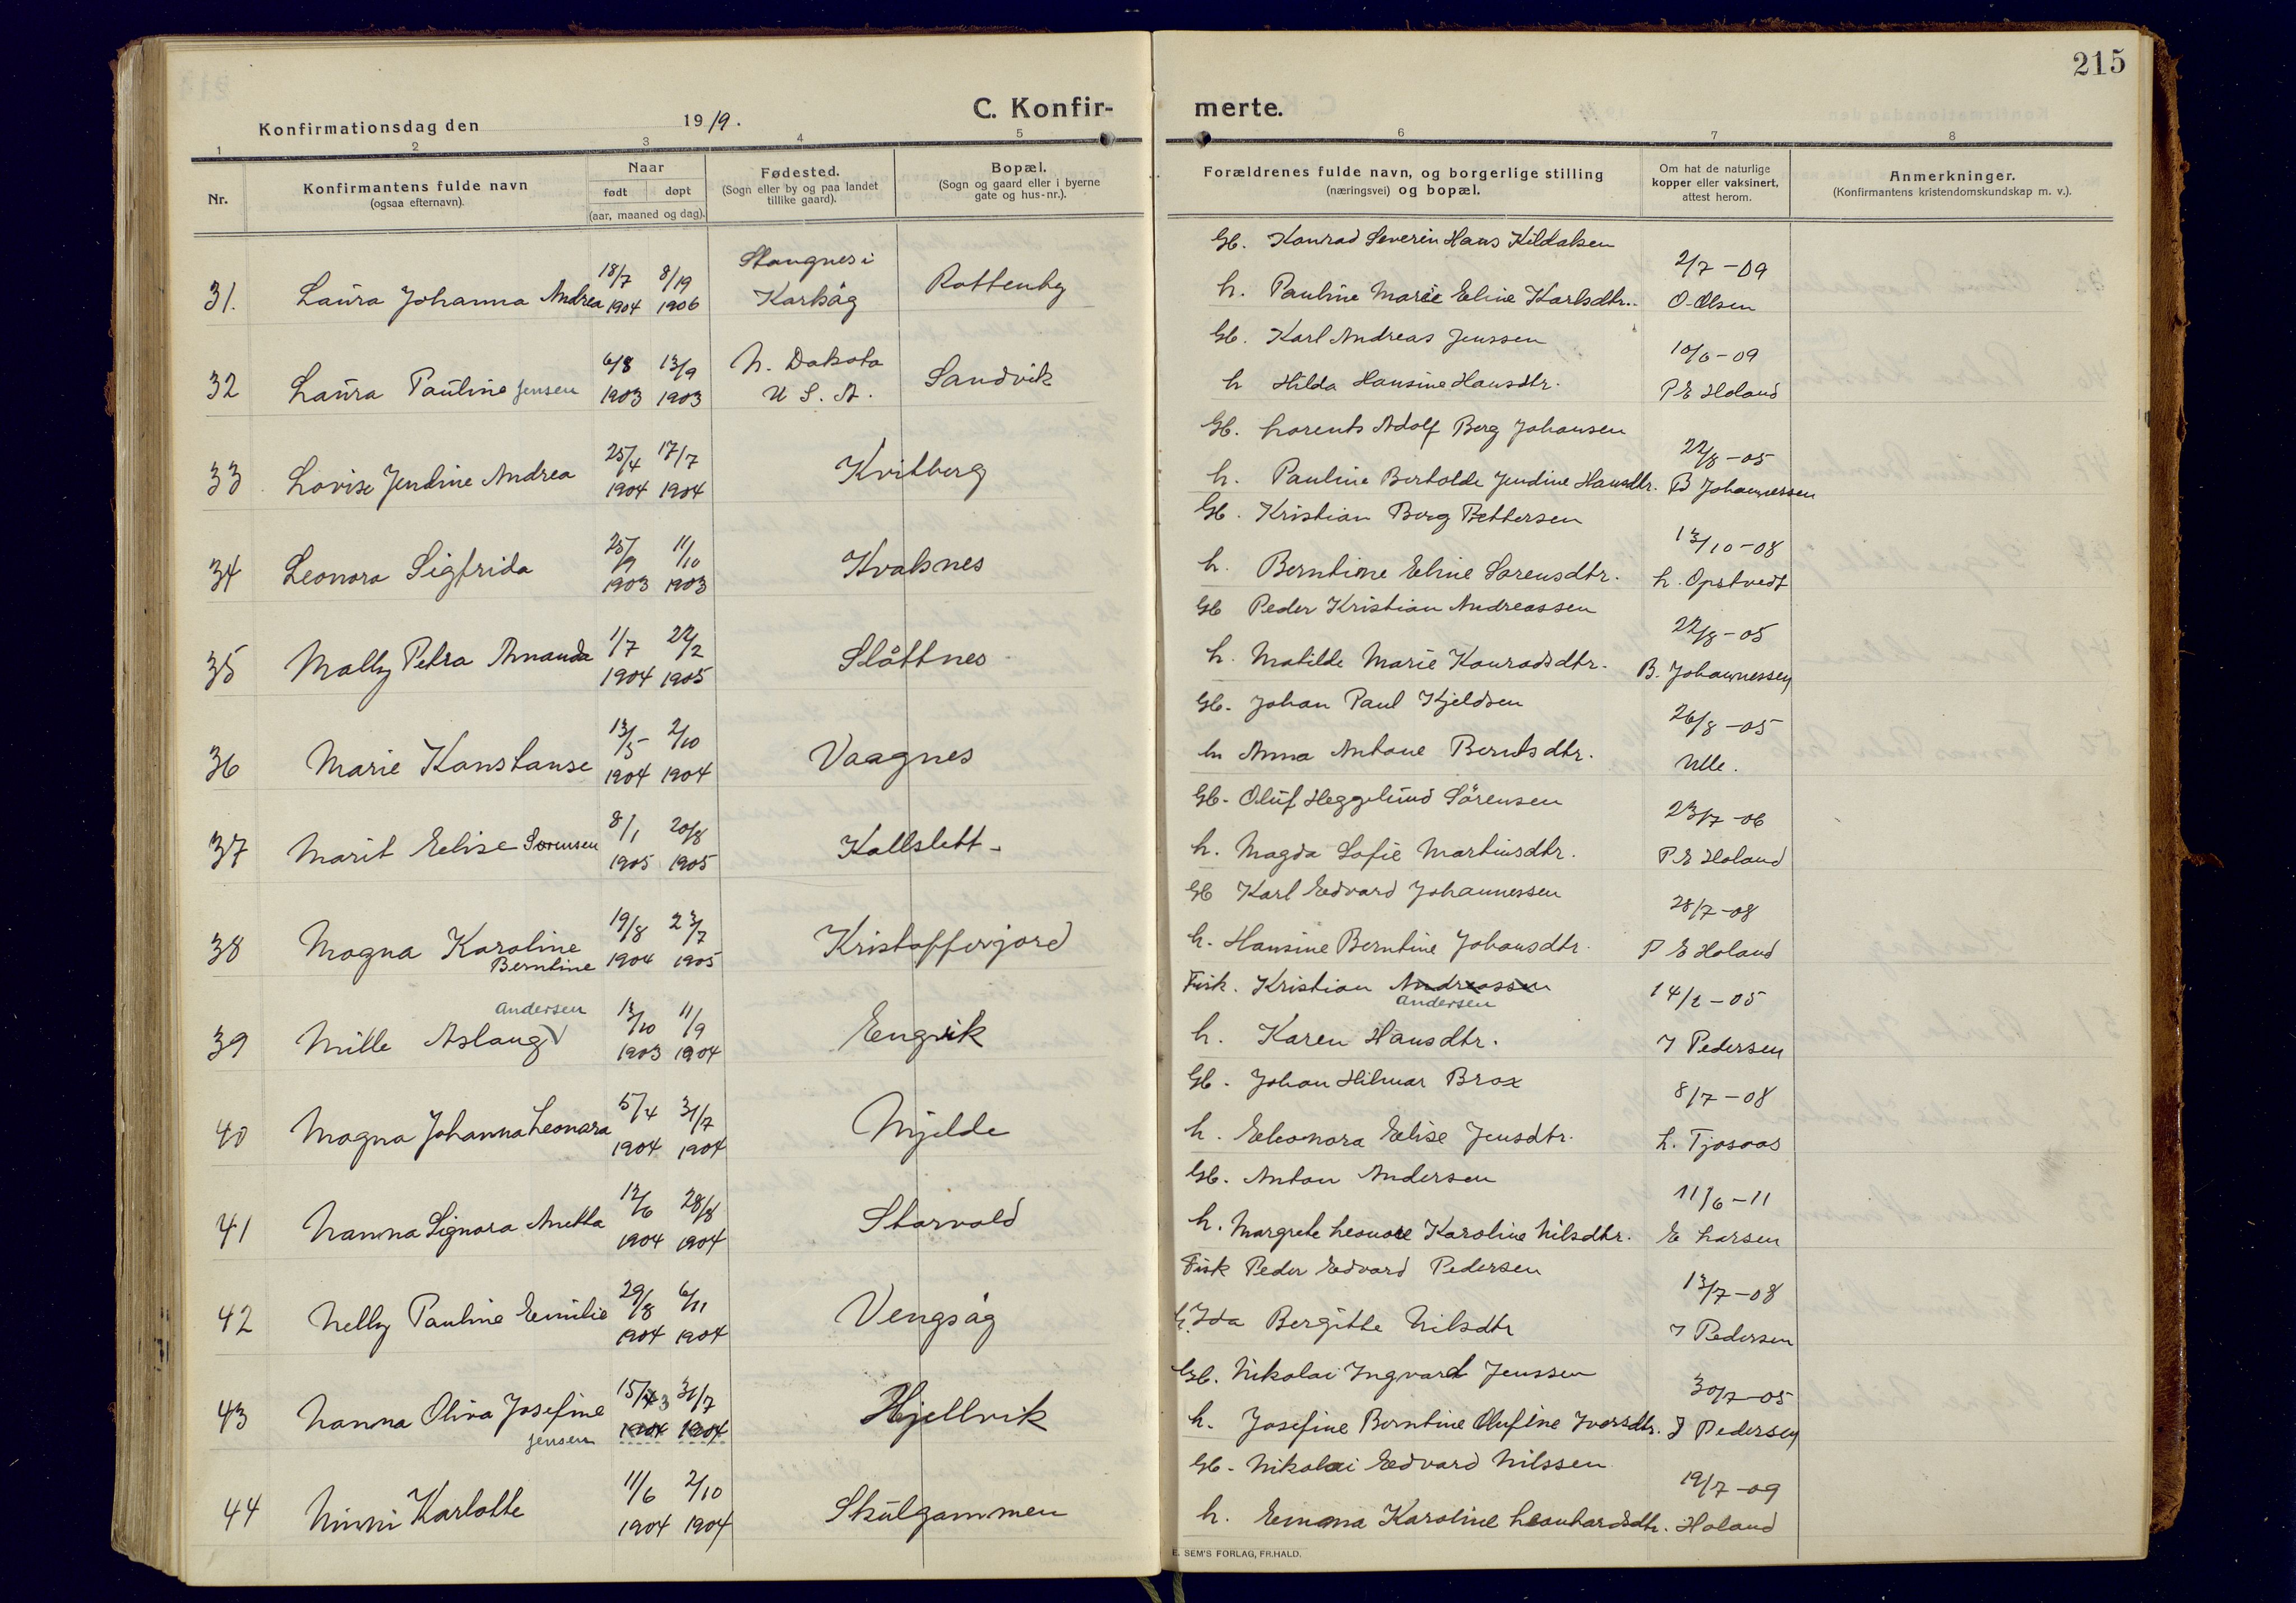 215
C. Konfir- merte.
Konfirmationsdag den 1919.
1 2 3 4 5 6 7 8
Nr.
Konfirmantens fulde navn
(ogsaa efternavn).
Naar
født døpt
(aar, maaned og dag).
Fødested.
(Sogn eller by og paa landet
tillike gaard).
Bopæl.
(Sogn og gaard eller i byerne
gate og hus-nr.).
Forældrenes fulde navn, og borgerlige stilling
(næringsvei) og bopæl.
Om hat de naturlige
kopper eller vaksinert,
attest herom.
Anmerkninger.
(Konfirmantens kristendomskundskap m. v.).
Gb. Konrad Severin Hans Kildalsen
18/7 8/19 Stangnes i 2/7-09
31. Laura Johanna Andrea 1904 1906 Karlsåg Rottenby h. Pauline Marie Eline Karlsdtr. O. Olsen
Gb. Karl Andreas Jenssen
6/8 13/9 N. Dakota 10/6-09
32 Laura Pauline Jensen 1903 1903 U S. A. Sandvik h Hilda Hansine Hansdtr. P E Holand
Gb. Lorents Adolf Berg Johansen
25/4 17/7 22/8-05
33 Lovise Jendine Andrea 1904 1904 Kvitberg h. Pauline Bertolde Jendine Hansdtr. B Johannessen
Gb. Kristian Berg Bettersen
25/9 11/10 13/10-08
34 Leonora Sigfrida 1903 1903 Kvalsnes h. Berntine Eline Sorensdtr. L. Opstvedt
Gb Peder Kristian Andreassen
1/7 22/2 22/8-05
35 Mally Petra Amanda 1904 1905 Slåttnes h. Matilde Marie Konradsdtr. B. Johannessen
Gb. Johan Paul Kjeldsen
13/5 2/10 26/8-05
36 Marie Konstanse 1904 1904 Vaagnes h Anna Antone Berntsdtr. Ulle.
Gb. Oluf Heggelund Sörensen
8/1 20/8 23/7-06
37 Marit Elise Sorensen 1905 1905 Kallslett h. Magda Sofie Martinsdtr. P. E Holand
Gb Karl Edvard Johannessen
19/8 23/7 28/7-08
38 Magna Karoline 1904 1905 Kristofferjord h. Hansine Berntine Johansdtr. P E Holand
Berntine
Fisk. Kristian Andreassen
Andersen 13/10 11/9 Andersen 14/2-05
39 Mille Aslaug 1903 1904 Engvik h. Karen Hansdtr. J Pedersen
Gb. Johan Hilmar Brox
5/4 31/7 8/7-08
40 Magna Johanna Leonora 1904 1904 Mjelde h. Eleonora Elise Jensdtr. L. Tjosaas
Gb. Anton Andersen
12/6 28/8 11/6-11
41 Nanna Signora Anetta 1904 1904 Storvold h. Margrete Leonore Karoline Nilsdtr. E Larsen
Fisk Peder Edvard Pedersen
29/8 6/11 13/7-08
42 Nelly Pauline Emilie 1904 1904 Vengsåg h. Ida Bergitte Nilsdtr J Pedersen
Gb. Nikolai Ingvard Jenssen
15/3 31/7 30/7-05
43 Nanna Oliva Josefine 1904 1904 Hjellvik h. Josefine Berntine Olufine Iversdtr. J Pedersen
Jensen
Gb. Nikolai Edvard Nilssen
11/6 2/10 19/7-09
44 Ninni Karlotte 1904 1904 Skulgammen h. Emma Karoline Leonhardsdtr. Holand
E. SEM'S FORLAG, FR.HALD.